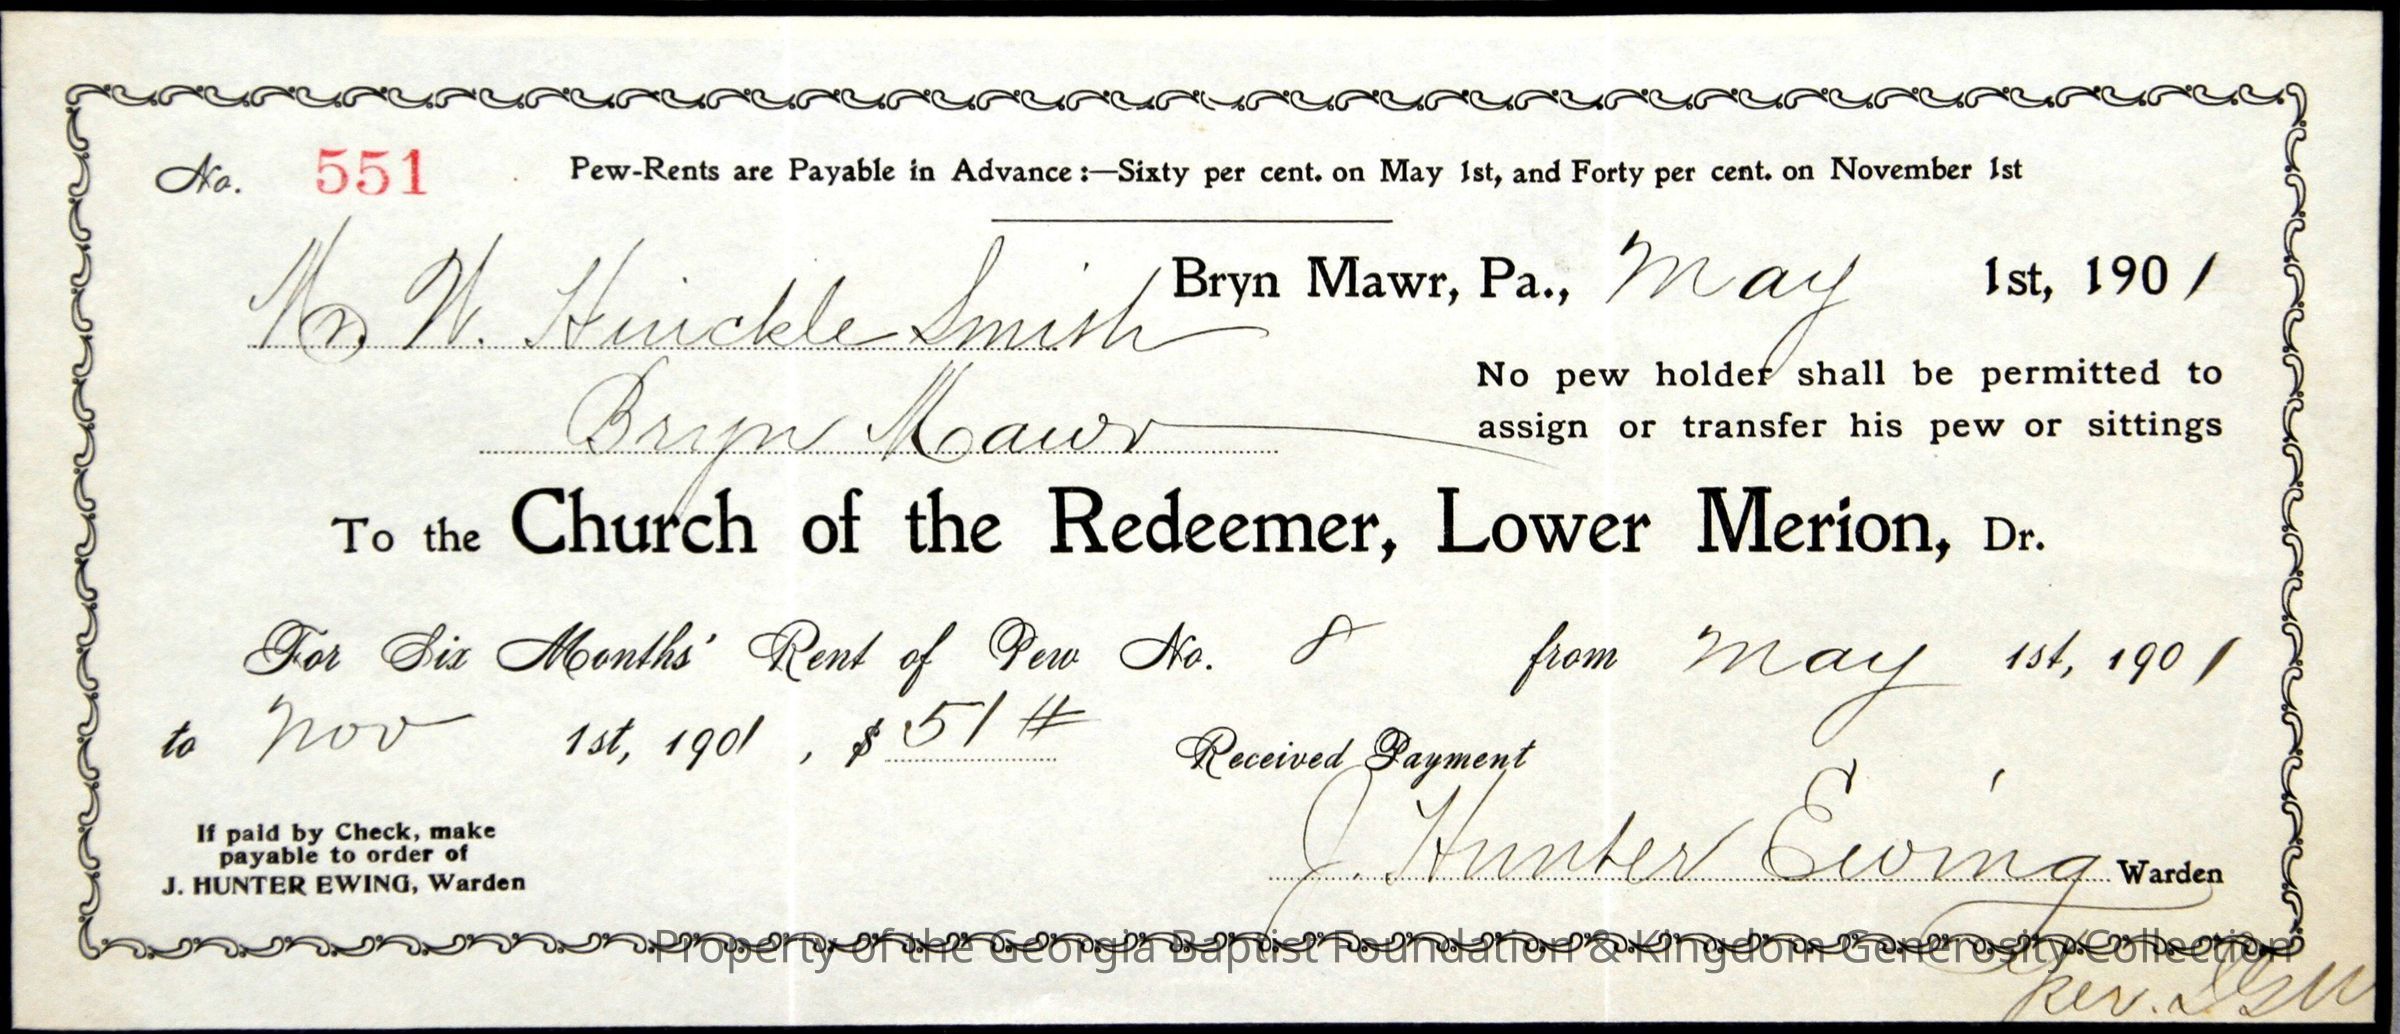 No. 551 Pew-Rents are Payable in Advance:—Sixty per cent. on May 1st, and Forty per cent. on November 1st
Bryn Mawr, Pa., May 1st, 1901
Mr. W. Hinckle Smith
Bryn Mawr
No pew holder shall be permitted to
assign or transfer his pew or sittings
To the Church of the Redeemer, Lower Merion, Dr.
For Six Months' Rent of Pew No. 8 from May 1st, 1901
to Nov 1st, 1901, $ 51
Received Payment
If paid by Check, make
payable to order of
J. HUNTER EWING, Warden
J. Hunter Ewing Warden
Property of the Georgia Baptist Foundation & Kingdom Generosity Collection
Per.